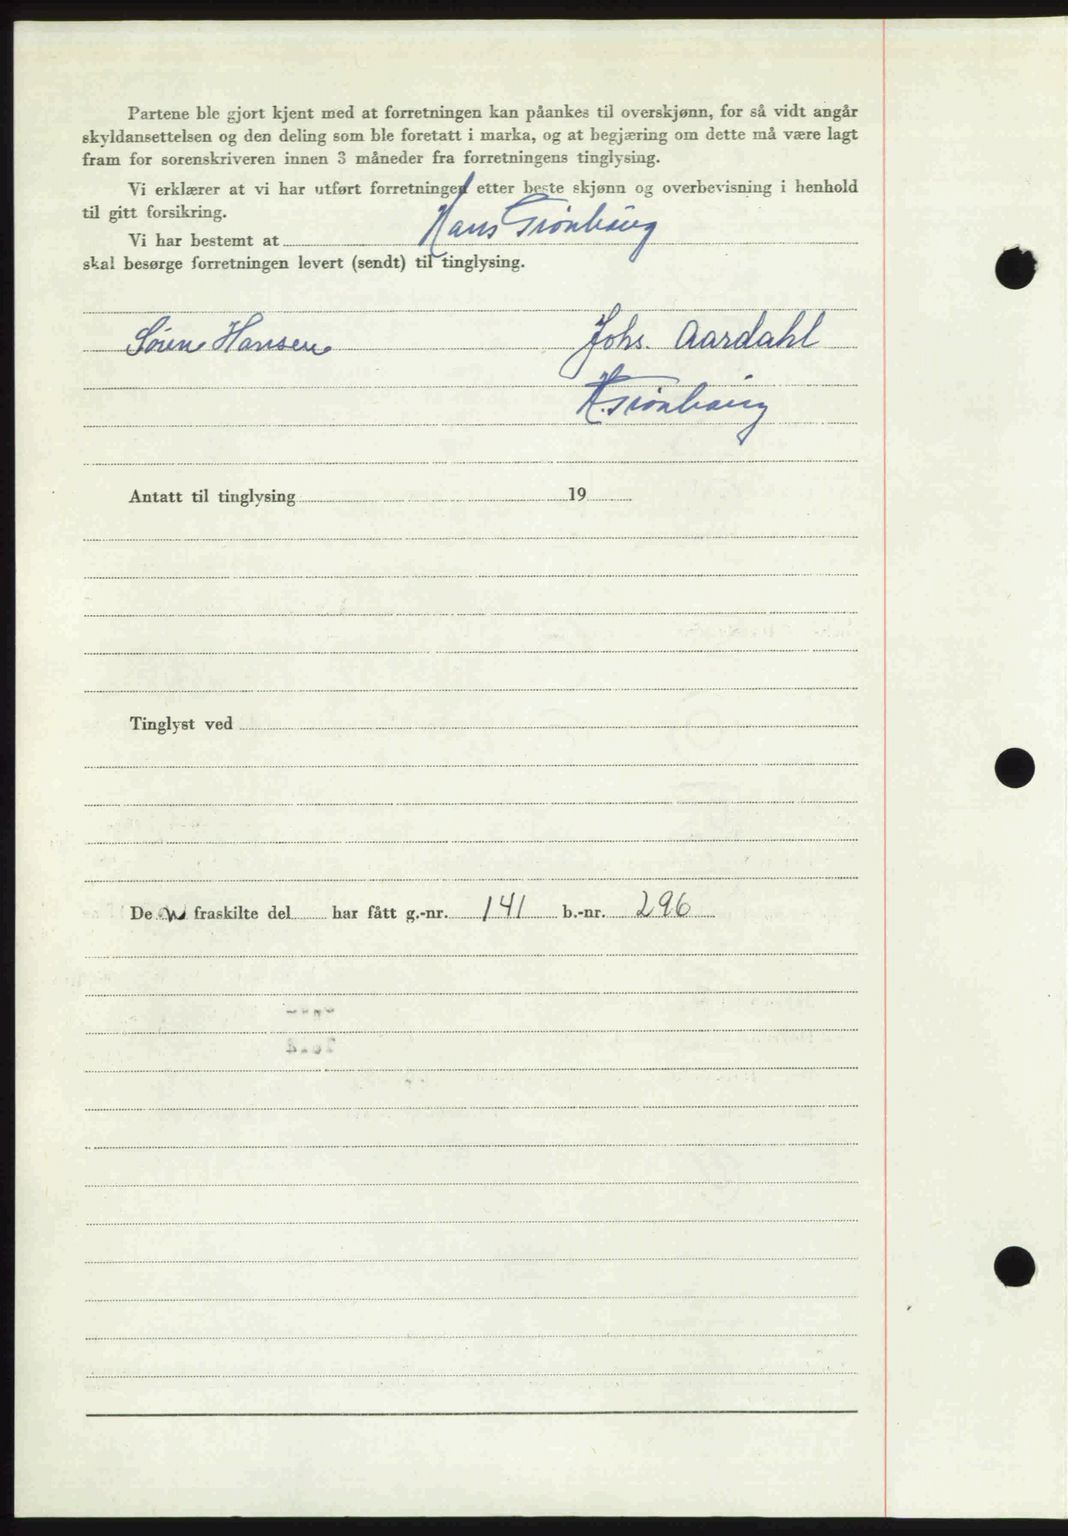 Partene ble gjort kjent med at forretningen kan påankes til overskjønn, for så vidt angår
skyldansettelsen og den deling som ble foretatt i marka, og at begjæring om dette må være lagt
fram for sorenskriveren innen 3 måneder fra forretningens tinglysing.
Vi erklærer at vi har utført forretningen etter beste skjønn og overbevisning i henhold
til gitt forsikring.
Vi har bestemt at Hans Trønhaug
skal besørge forretningen levert (sendt) til tinglysing.
Søren Hansen Johs. Aardahl
H. Trønhaug
Antatt til tinglysing 19
Tinglyst ved
De n fraskilte del har fått g.-nr. 141 b.-nr. 296